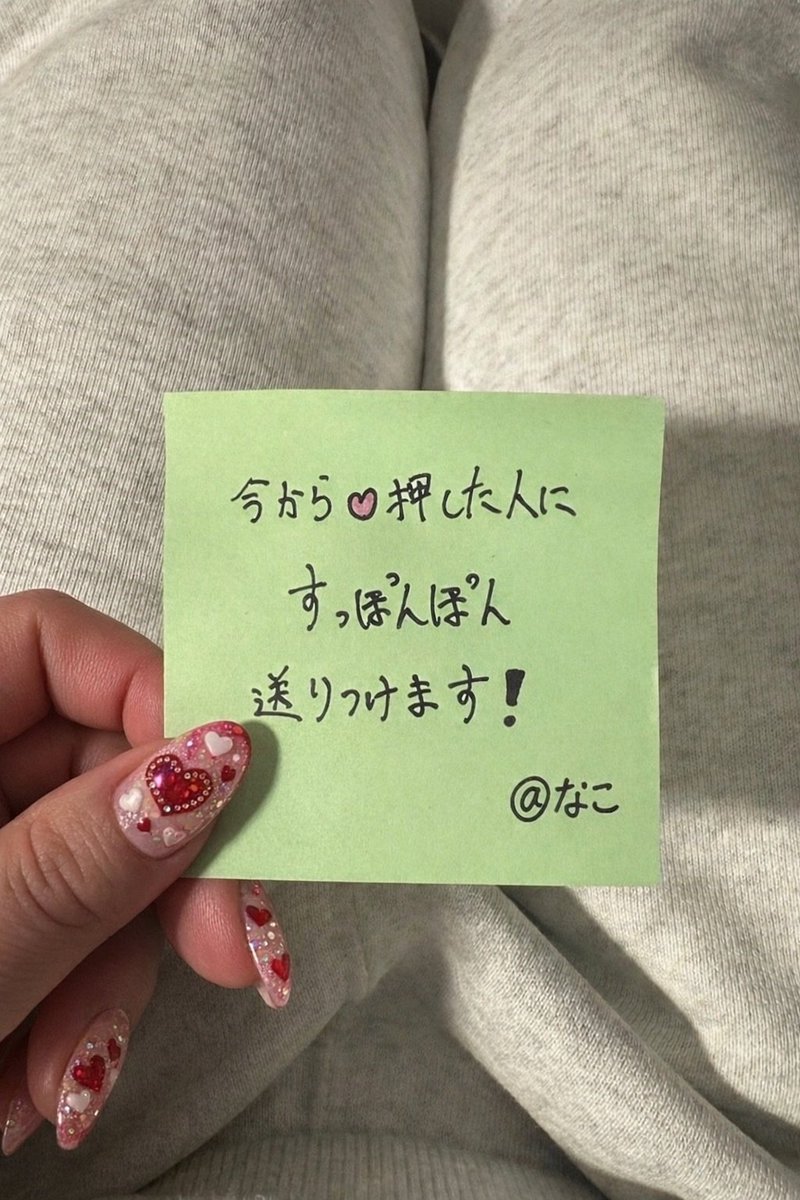 今から♡押した人に
すっぽんぽん
送りつけます!
@なこ